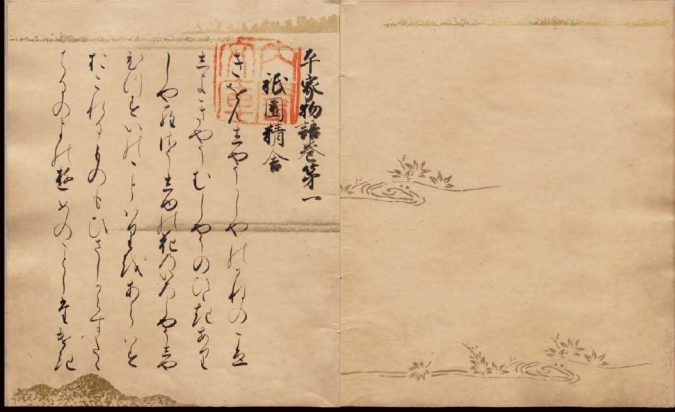 平家物語巻第一
祇園精舎
きをんしやうしやのかねのこゑ
しよきやうむしやうのひゝきあり
しやらさうしゆの花のいろしやうしや
ひつすいのことはりをあらはす
おこれるものもひさしからすたゝ
はるのよの夢のことし